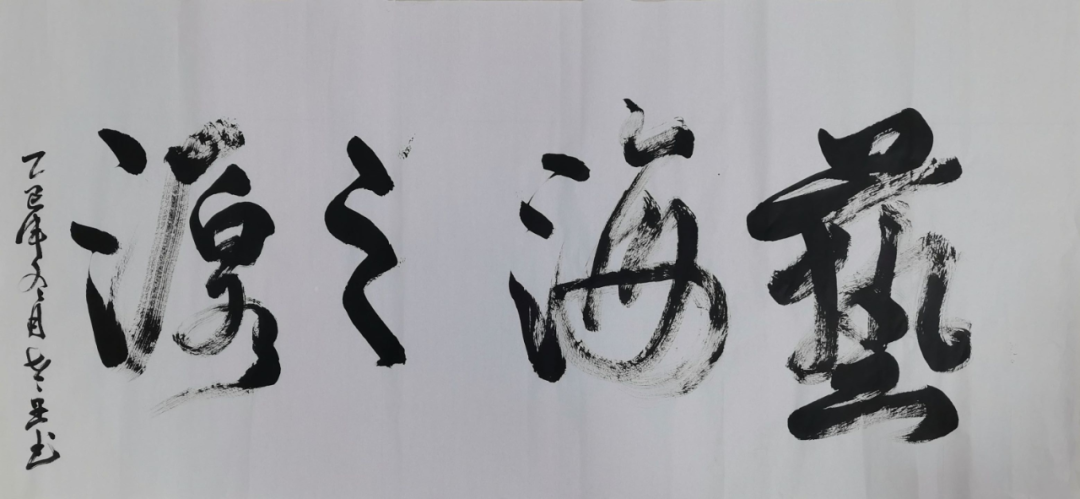 藝海之源
乙巳年 月 書